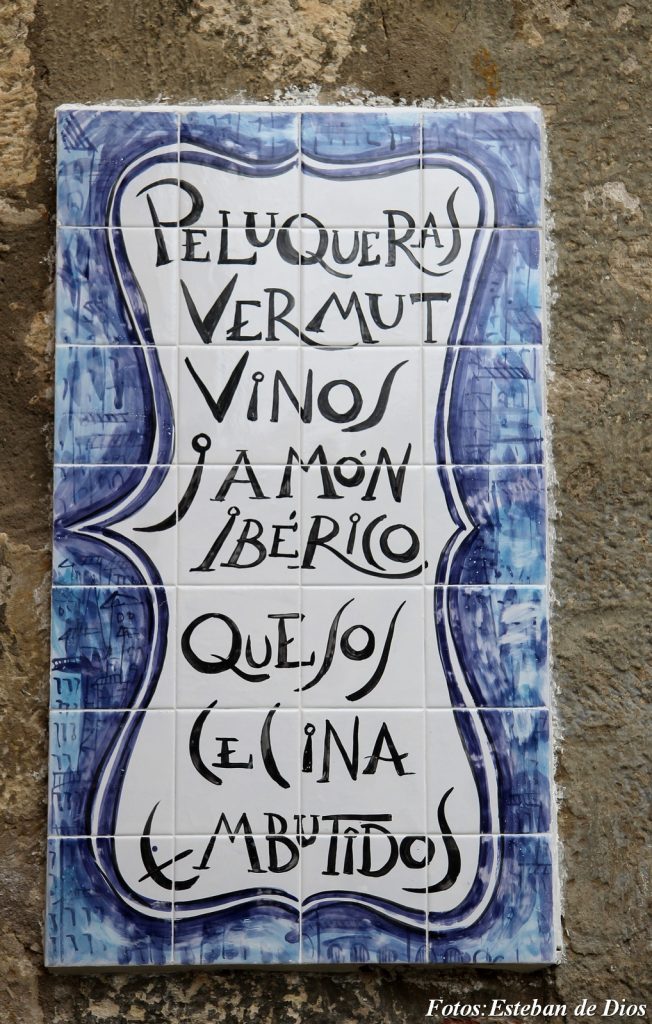 PELUQUERAS
VERMUT
VINOS
JAMÓN
IBÉRICO.
QUESOS
CECINA
EMBUTIDOS
Fotos:Esteban de Dios